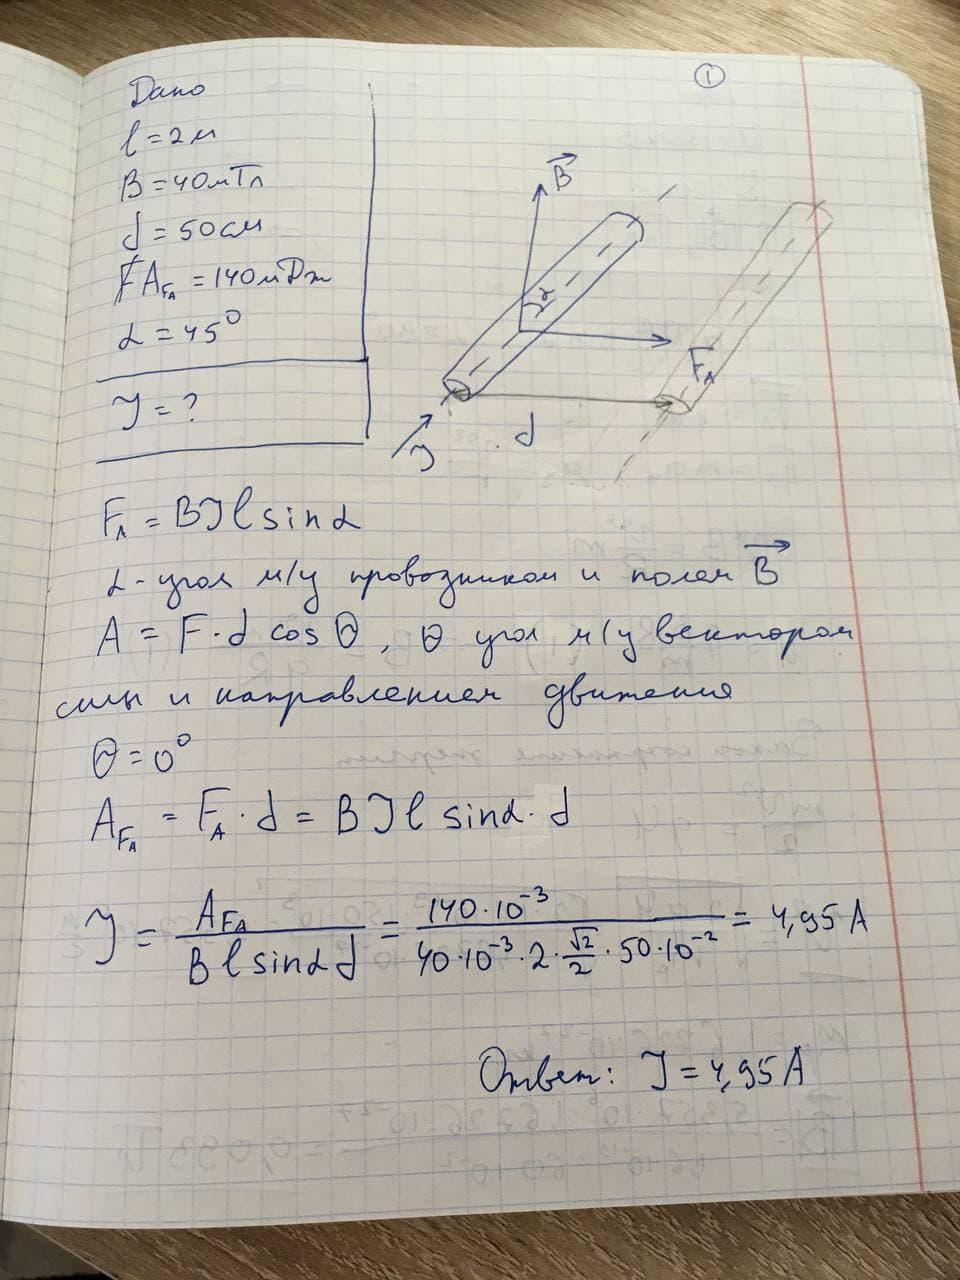 ①
Дано
l = 2м
B = 40мТл
d = 50см
A_{F_A} = 140мДж
α = 45°
J = ?
B⃗
α
F_A
d
J
F_A = BJl sinα
α - угол м/у проводником и полем B⃗
A = F·d cosΘ, Θ угол м/у вектором
силы и направлением движения
Θ = 0°
A_{F_A} = F_A·d = BJl sinα·d
J = A_{F_A} / (Bl sinα d) = 140·10⁻³ / (40·10⁻³·2·√2/2·50·10⁻²) = 4,95 A
Ответ: J = 4,95 A